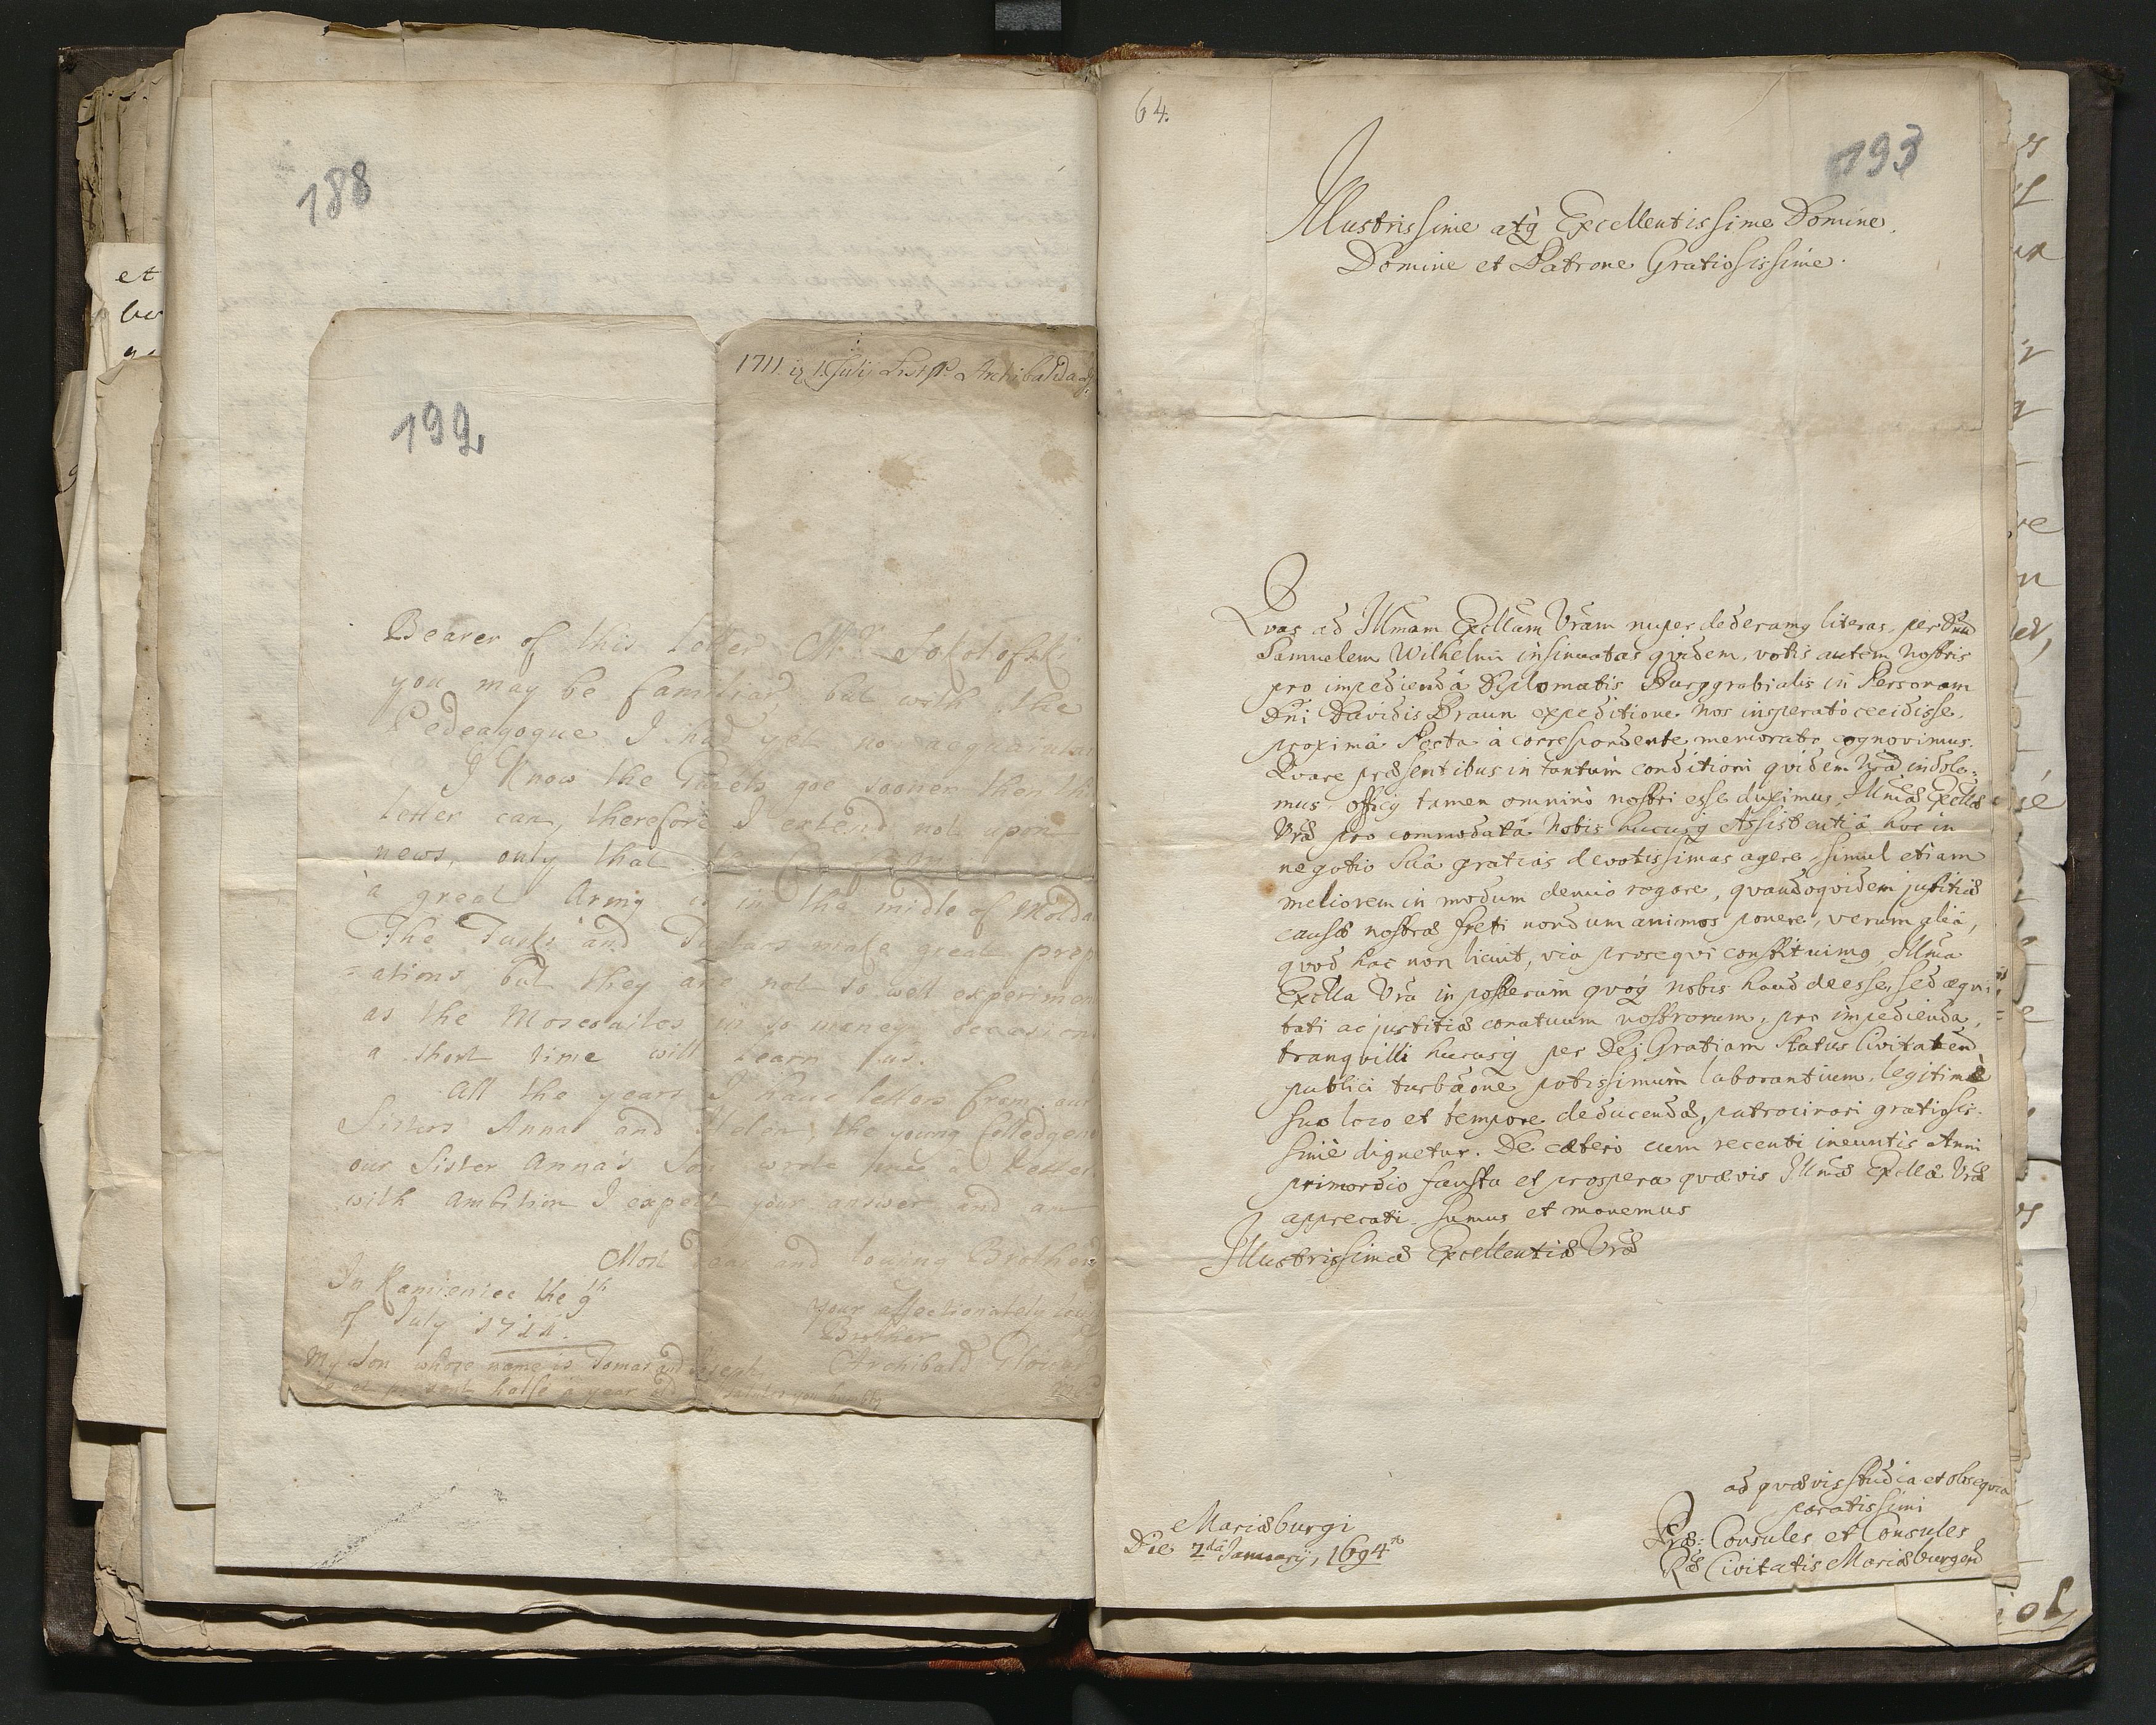 188
192
1711 Julij List P. Archibalda
Bearer of this letter Mr. Sokolofski
you may be familiar, but with the
Pedeagogue I had yet no
I Know the goe sooner then
letter can, therefore I extend not upon
news, only that
à great Army is in the midle of Molda
The Turks and Tartars make great prep
=ations but they are not so well experimen
as the Moscovites in so maney occasions
a short time will Learn us.
All the years I have letters from our
Sisters Anna and Helen, the young Colledgene
our Sister Anna's Son wrote mee a Letter
with Ambition I expect your answer and am
Most Dear and loving Brother
In Kamieniec the 9th
of July 1711.
your affectionately lov
Brother
Archibald
My Son whose name is Tomas and Joseph
is at present halfe a year old salutes you humbly
64.
193
Illustrissime atq Excellentissime Domine.
Domine et Patrone Gratiosissime.
Qvas ad Illmam Excllam Vram nuper dederamq literas, per Dnum
Samuelem Wilhelmi insinuatas qvidem, votis autem nostris
pro impediendâ Diplomatis Burggrabialis in Personam
Dni Davidis Braun expeditione nos insperatò cecidisse,
proximâ Posta à correspondente memorato cognovimus.
Qvare præsentibus in tantum conditioni qvidem nræ indole=
mus, officij tamen omninò nostri esse duximus, Illmæ Excllæ
Vræ pro commodatâ Nobis hucusq Assistentiâ hoc in
negotio Suâ gratias devotissimas agere, simul etiam
meliorem in modum denuò rogare, qvandoqvidem justitiæ
causæ nostræ freti nondum animos ponere, verum aliâ,
qvod hac non licuit, via proseqvi constituimq, Illma
Exclla Vra in posterum qvoq nobis haud deesse, sed æqvi=
tati ac justitiæ conatuum nostrorum, pro impedienda,
tranqvilli hucusq per Dei Gratiam Status Civitatens
publici turbaone potissimum laborantium, legitimè
suo loco et tempore deducendæ, patrocinari gratiosis=
simè dignetur. De cætero cum recenti ineuntis Anni
primordio fausta et prospera qvævis Illmæ Excllæ Vræ
apprecati. sumus et manemus
Illustrissimæ Excellentiæ Vræ
ad qvævis studia et obseqvia
paratissimi
Præ: Consules et Consules
Ræ Civitatis Mariæburgens
Mariæburgi
Die 2da January, 1694to